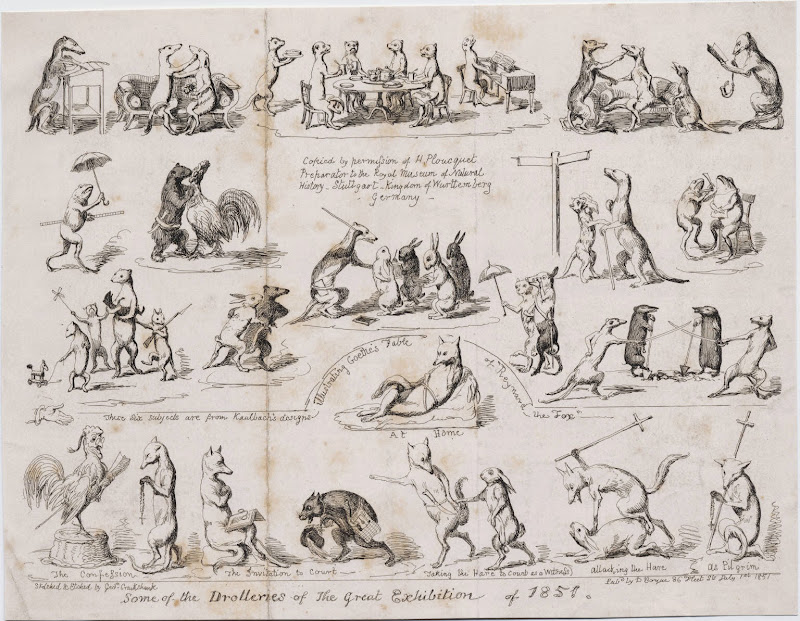 Copied by permission of H. Ploucquet
Preparator to the Royal Museum of Natural
History - Stuttgart - Kingdom of Wurttemberg
- Germany -
Illustrating Goethe's Fable of "Reynard the Fox"
These six subjects are from Kaulbach's designs
At Home
The Confession
The Invitation to Court
Taking the Hare to Court as a Witness
Attacking the Hare
as Pilgrim
Sketched & Etched by Geo. Cruikshank
Pubd. by D. Bogue 86 Fleet St July 1st 1851
Some of the Drolleries of The Great Exhibition of 1851.